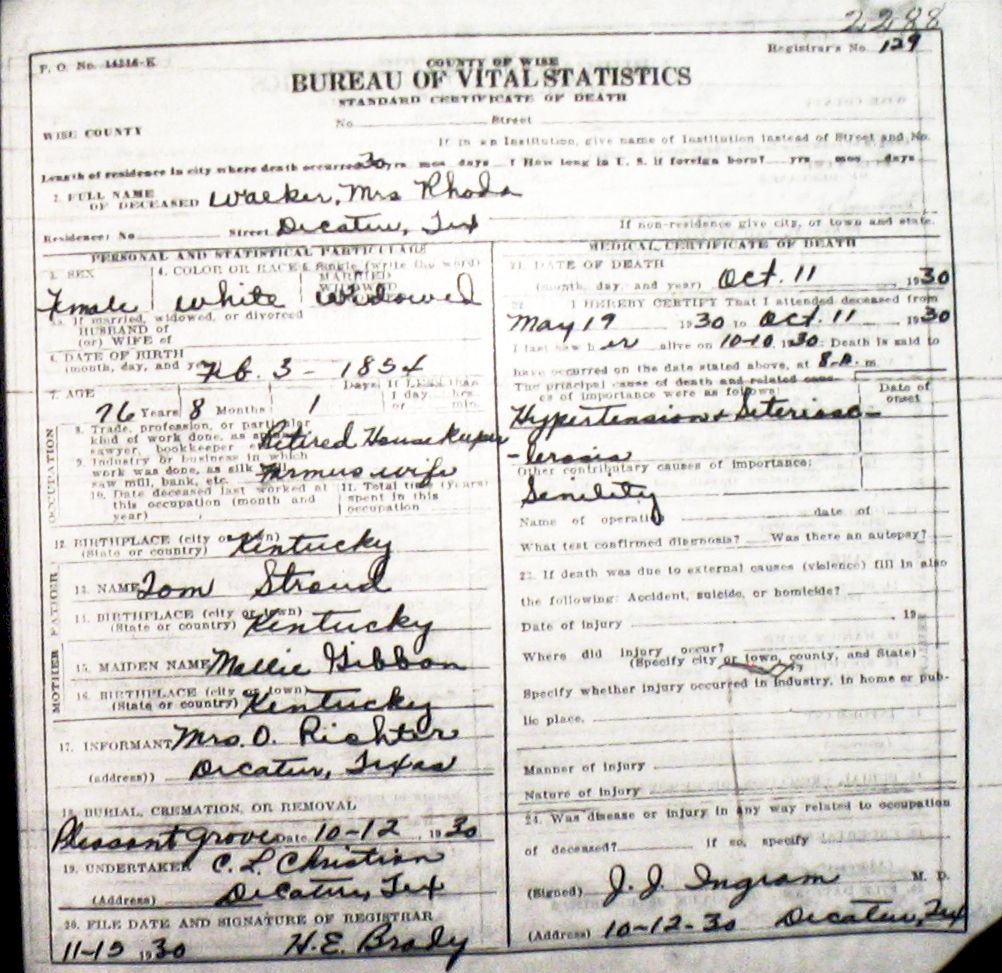 2288
Registrar's No. 129
F. O. No. 14316-K
COUNTY OF WISE
BUREAU OF VITAL STATISTICS
STANDARD CERTIFICATE OF DEATH
No. Street
WISE COUNTY
If in an Institution, give name of Institution instead of Street and No.
Length of residence in city where death occurred 30 yrs mos days ? How long in U. S. if foreign born? yrs mos days
2. FULL NAME OF DECEASED Walker, Mrs Rhoda
Residence: No. Street Decatur, Tex If non-residence give city, or town and state.
PERSONAL AND STATISTICAL PARTICULARS
3. SEX 4. COLOR OR RACE 5. Single (write the word) MARRIED WIDOWED
Female White Widowed
5a. If married, widowed, or divorced
HUSBAND of
(or) WIFE of
6. DATE OF BIRTH
(month, day, and year) Feb. 3 - 1854
7. AGE Days If LESS than 1 day hrs. or min.
76 Years 8 Months 1
OCCUPATION
8. Trade, profession, or particular
kind of work done, as
sawyer, bookkeeper Retired House Keeper
9. Industry or business in which
work was done, as silk mill,
saw mill, bank, etc. Farmers wife
10. Date deceased last worked at
this occupation (month and
year)
11. Total time (years)
spent in this
occupation
12. BIRTHPLACE (city or town)
(State or country) Kentucky
FATHER
13. NAME Tom Stroud
14. BIRTHPLACE (city or town)
(State or country) Kentucky
MOTHER
15. MAIDEN NAME Mollie Gibbon
16. BIRTHPLACE (city or town)
(State or country) Kentucky
17. INFORMANT Mrs. O. Richter
(address)) Decatur, Texas
18. BURIAL, CREMATION, OR REMOVAL
Pleasant Grove Date 10-12, 1930
19. UNDERTAKER C. L. Christian
(Address) Decatur, Tex
20. FILE DATE AND SIGNATURE OF REGISTRAR
11-15 1930 H. E. Brady
MEDICAL CERTIFICATE OF DEATH
21. DATE OF DEATH
(month, day, and year) Oct. 11, 1930
22. I HEREBY CERTIFY That I attended deceased from
May 19 1930 to Oct. 11 1930
I last saw her alive on 10-10 1930; Death is said to
have occurred on the date stated above, at 8-A. m.
The principal cause of death and related causes
of importance were as follows: Date of onset
Hypertension & Arteriosc-
-lerosis
Other contributary causes of importance:
Senility
Name of operation date of
What test confirmed diagnosis? Was there an autopsy?
23. If death was due to external causes (violence) fill in also
the following: Accident, suicide, or homicide?
Date of injury , 19
Where did injury occur?
(Specify city or town, county, and State)
Specify whether injury occurred in industry, in home or pub-
lic place.
Manner of injury
Nature of injury
24. Was disease or injury in any way related to occupation
of deceased? If so, specify
(Signed) J. J. Ingram M. D.
(Address) 10-12-30 Decatur, Tex